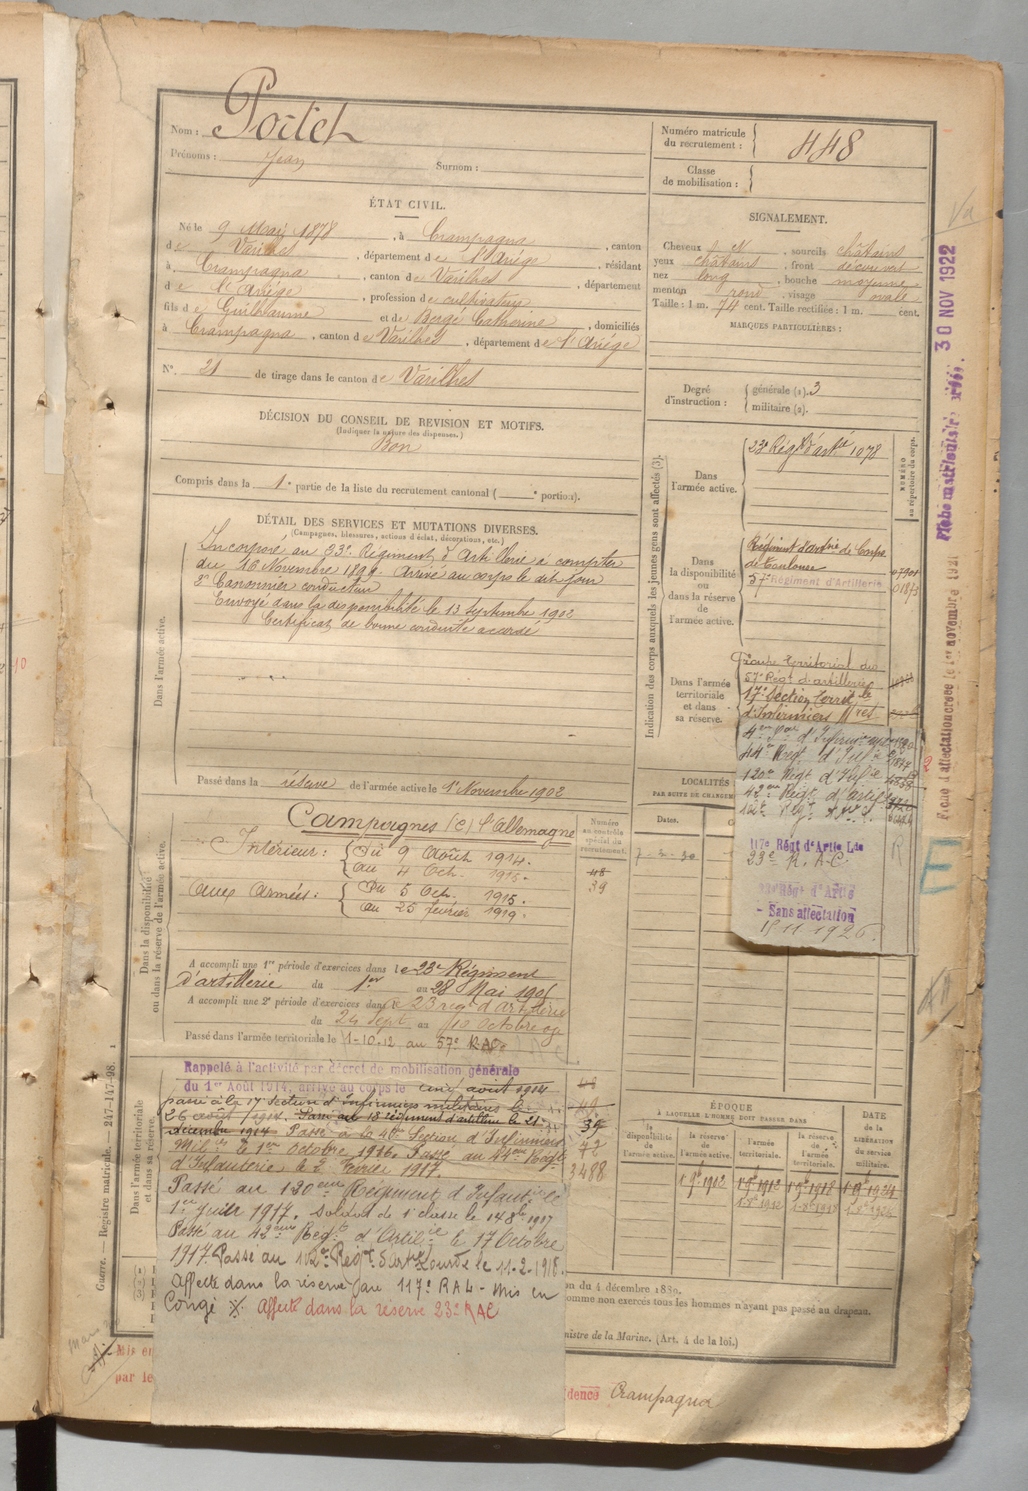 Nom : Portet
Prénoms : Jean Surnom :
Numéro matricule du recrutement : 448
Classe de mobilisation :
ÉTAT CIVIL.
Né le 9 Mai 1878, à Crampagna, canton
de Varilhes, département de l'Ariège, résidant
à Crampagna, canton de Varilhes, département
de l'Ariège, profession de cultivateur
fils de Guillaume et de Bergé Catherine, domiciliés
à Crampagna, canton de Varilhes, département de l'Ariège
N° 21 de tirage dans le canton de Varilhes
SIGNALEMENT.
Cheveux sourcils châtains
yeux châtains, front découvert
nez long, bouche moyenne
menton rond, visage ovale
Taille : 1 m. 74 cent. Taille rectifiée : 1 m. cent.
MARQUES PARTICULIÈRES :
Degré d'instruction : générale (1). 3
militaire (2).
DÉCISION DU CONSEIL DE REVISION ET MOTIFS.
(Indiquer la nature des dispenses.)
Bon
Compris dans la 1e partie de la liste du recrutement cantonal ( e portion).
DÉTAIL DES SERVICES ET MUTATIONS DIVERSES.
(Campagnes, blessures, actions d'éclat, décorations, etc.)
Dans l'armée active.
Incorporé au 23e Régiment d'Artillerie à compter
du 16 Novembre 1899. Arrivé au corps le dit jour
2e Canonnier conducteur
Envoyé dans la disponibilité le 13 Septembre 1902
Certificat de bonne conduite accordé
Passé dans la réserve de l'armée active le 1er Novembre 1902
Indication des corps auxquels les jeunes gens sont affectés (3).
NUMÉRO au répertoire du corps.
Dans l'armée active.
23e Régt d'artie 1078
Dans la disponibilité ou dans la réserve de l'armée active.
Régiment d'artrie de Corps
de Toulouse
57e Régiment d'Artillerie
Dans l'armée territoriale et dans sa réserve.
Groupe territorial du
57e Régt d'artillerie
17e Section territle
d'Infirmiers Mres
44e Régt d'Infie
120e Régt d'Infie
42em Régt d'artie
117e Régt d'Artie Lde
23e R.A.C.
Régt d'Artie
- Sans affectation
18 11 1926
LOCALITÉS
PAR SUITE DE CHANGEM
Dates.
7-2-30
Dans la disponibilité ou dans la réserve de l'armée active.
Campagnes (c) l'Allemagne
Intérieur : Du 9 Août 1914.
au 4 Oct. 1915.
aux Armées : Du 5 Oct. 1915.
au 25 février 1919.
Numéro au contrôle spécial du recrutement.
48
39
A accompli une 1re période d'exercices dans le 23e Régiment
d'artillerie du 1er au 28 Mai 190
A accompli une 2e période d'exercices dans le 23 rég d'artillerie
du 24 Sept au 10 Octobre
Passé dans l'armée territoriale le 1-10.12 au 57e RAC
Dans l'armée territoriale et dans sa réserve.
Rappelé à l'activité par décret de mobilisation générale
du 1er Août 1914, arrivé au corps le août 1914
passé à la 17 section d'infirmiers militaires le
26 août 1914. Passé au 18 régiment d'artillerie le 21
décembre 1914 Passé à la 4e Section d'Infirmiers
Milres le 1er Octobre 1916. Passé au 44em Régt
d'Infanterie le 2 février 1917.
Passé au 120em Régiment d'Infanterie le
1er juin 1917. Soldat de 1e classe le 14 8bre 1917
Passé au 42eme Régt d'Artillie le 17 Octobre
1917. Passé au 102e Régt d'artie Lourde le 11-2-1918.
affecté dans la réserve au 117e RAL - Mis en
Congé Affecté dans la réserve 23e RAC
39
42
2488
ÉPOQUE
À LAQUELLE L'HOMME DOIT PASSER DANS
la disponibilité de l'armée active.
la réserve de l'armée active.
l'armée territoriale.
la réserve de l'armée territoriale.
DATE de la LIBÉRATION du service militaire.
on du 4 décembre 1889.
omme non exercés tous les hommes n'ayant pas passé au drapeau.
nistre de la Marine. (Art. 4 de la loi.)
Guerre. — Registre matricule. — 247-147-98.
Mis en
par le
dence Crampagna
Fiche d'affectation créée le 1er novembre 1921
30 NOV 1922
E